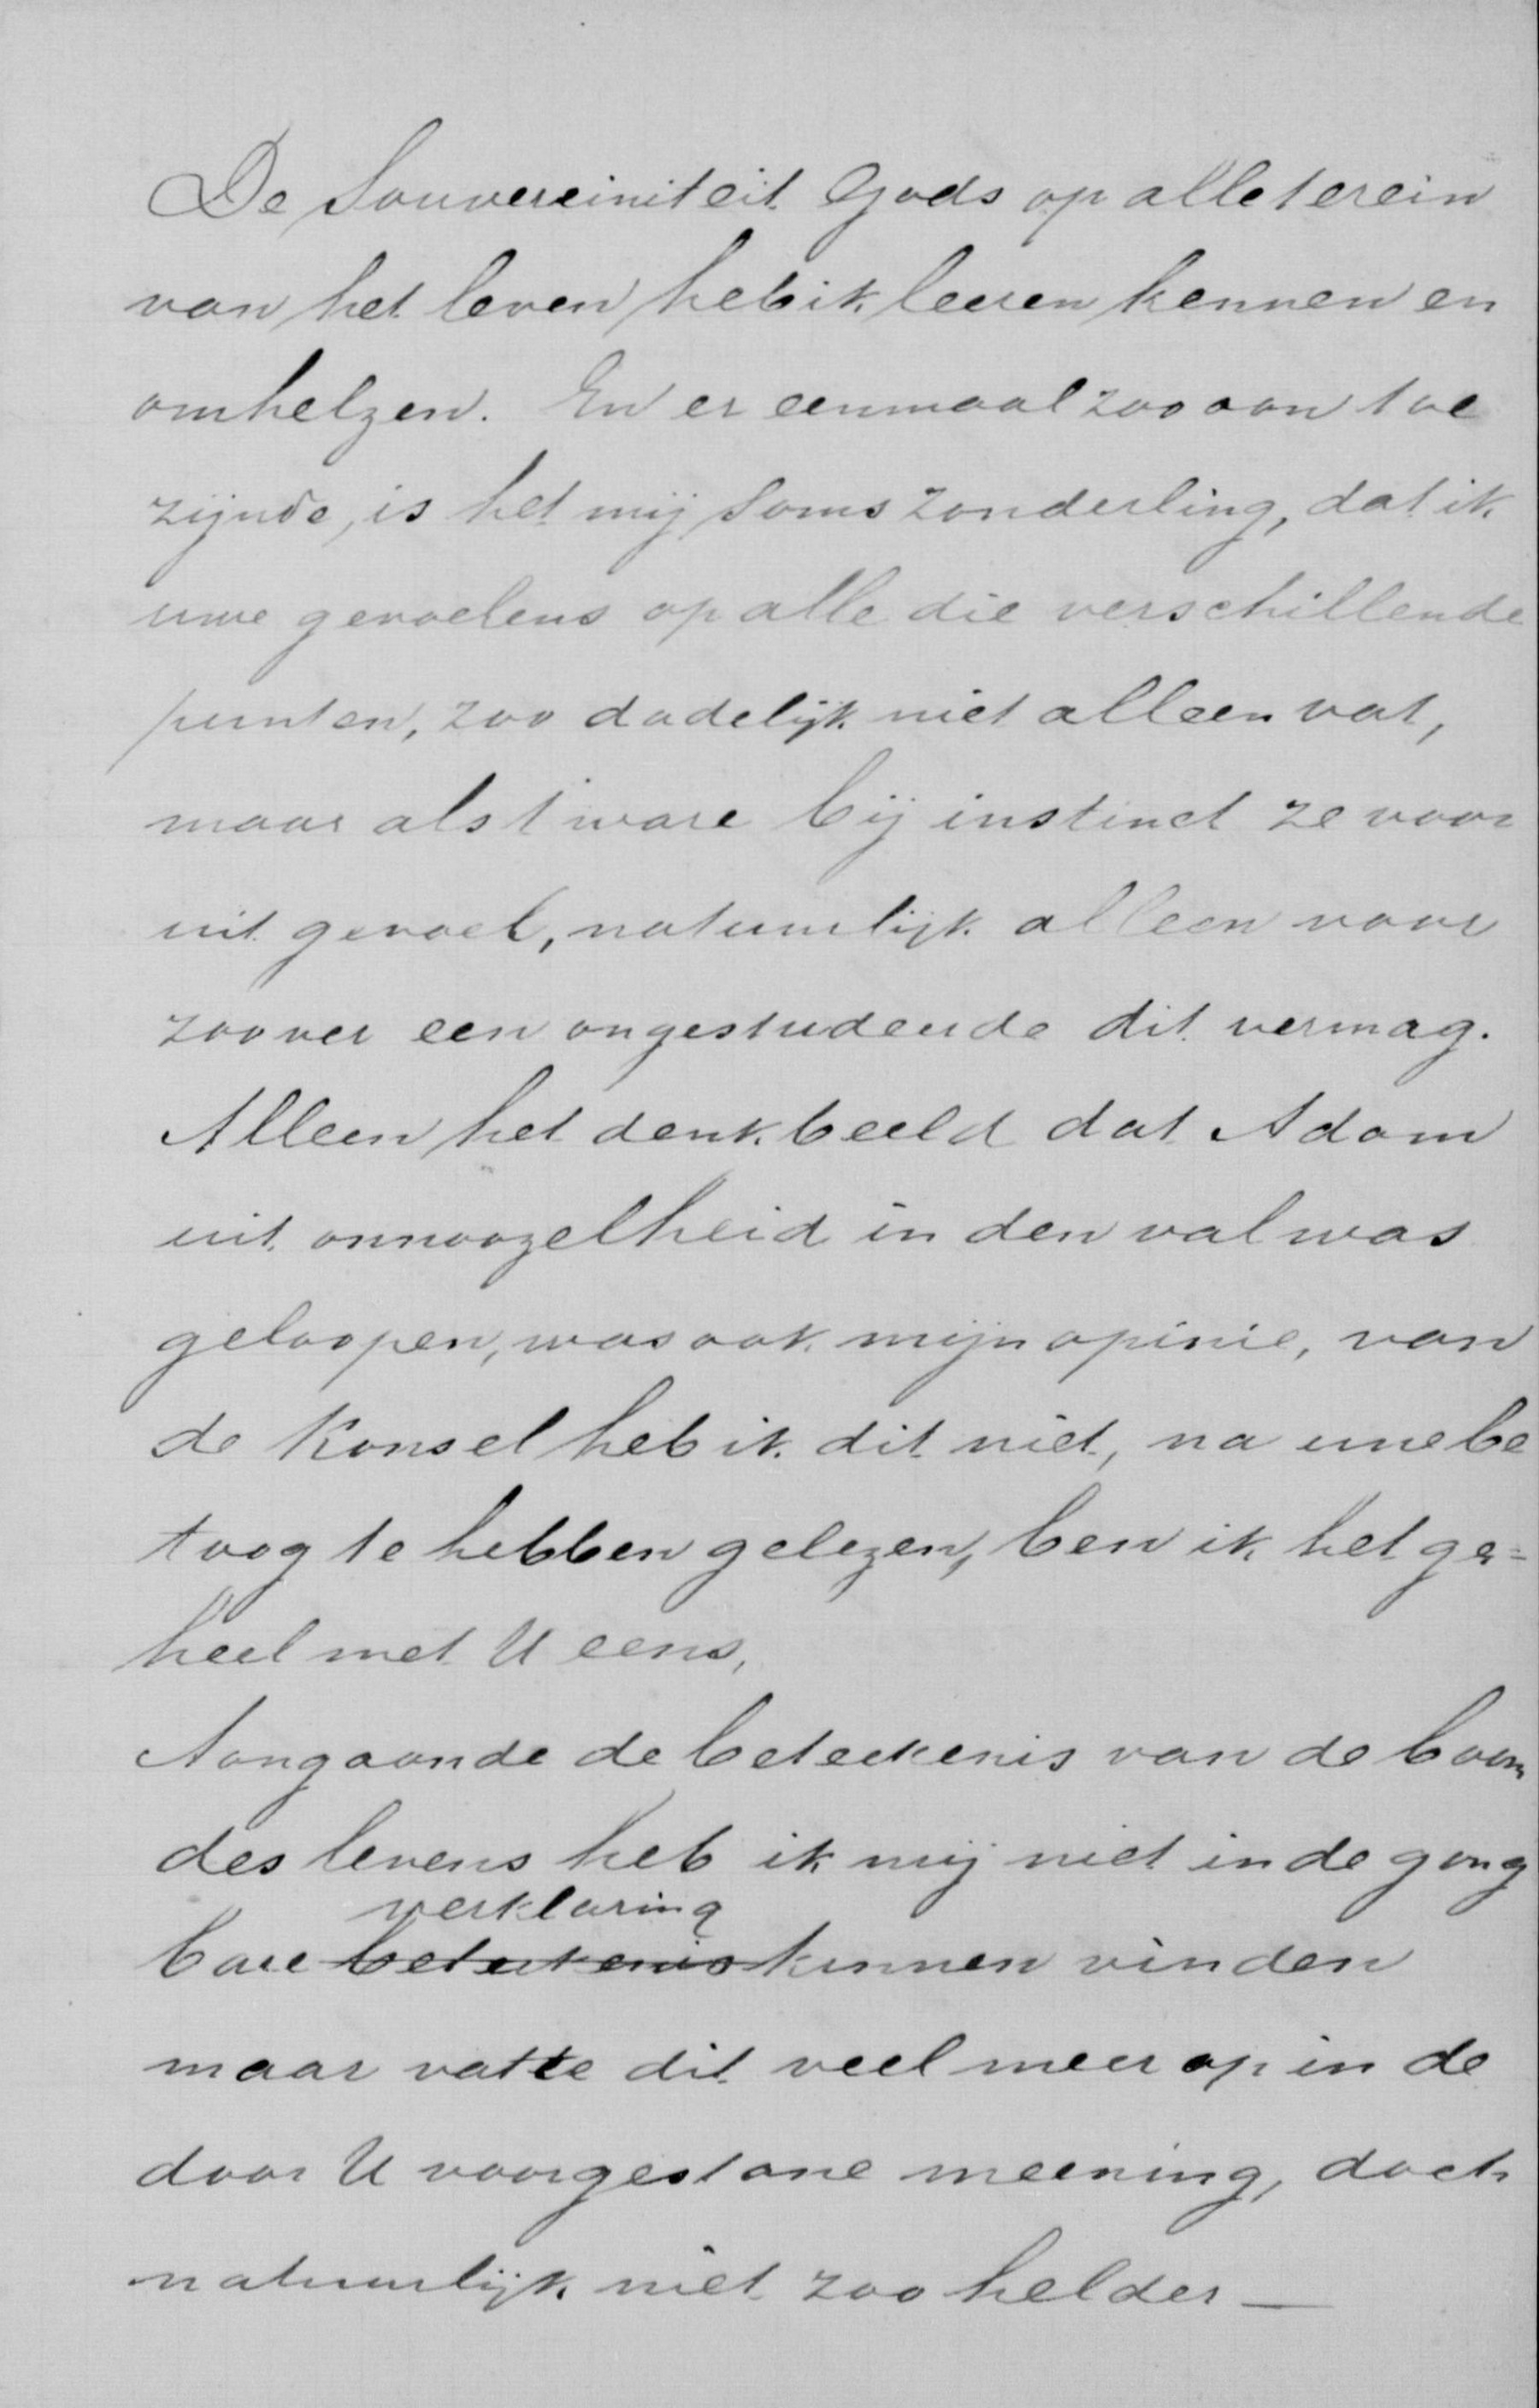 De Souvereiniteit Gods op alle terein
van het leven heb ik leeren kennen en
omhelzen. En er eenmaal zoo aan toe
zijnde, is het mij soms zonderling, dat ik
uwe gevoelens op alle die verschillende
punten, zoo dadelijk niet alleen vat,
maar als t ware bij instinct ze voor
uit gevoel, natuurlijk alleen voor
zoover een ongestudeerde dit vermag.
Alleen het denkbeeld dat Adam
uit onnoozelheid in den val was
geloopen, was ook mijn opinie, van
de Kansel heb ik dit niet, na uwe be
toog te hebben gelezen, ben ik het ge=
heel met U eens,
Aangaande de beteekenis van de boom
des levens heb ik mij niet in de gang
verklaring
bare beteekenis kunnen vinden
maar vatte dit veel meer op in de
door U voorgestane meening, doch
natuurlijk niet zoo helder —